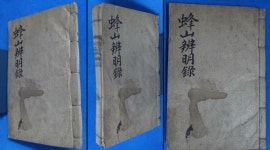 蜂山辨明錄
蜂山辨明錄
蜂山辨明錄